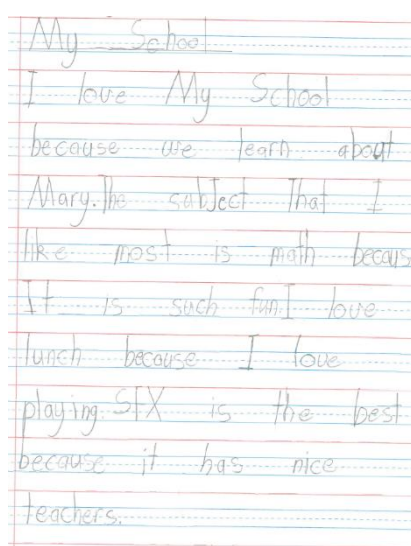 My School
I love My School
because we learn about
Mary. The subJect That I
like most is math becaus
It is such fun. I love
lunch because I love
playing. SFX is the best
because it has nice
teachers.